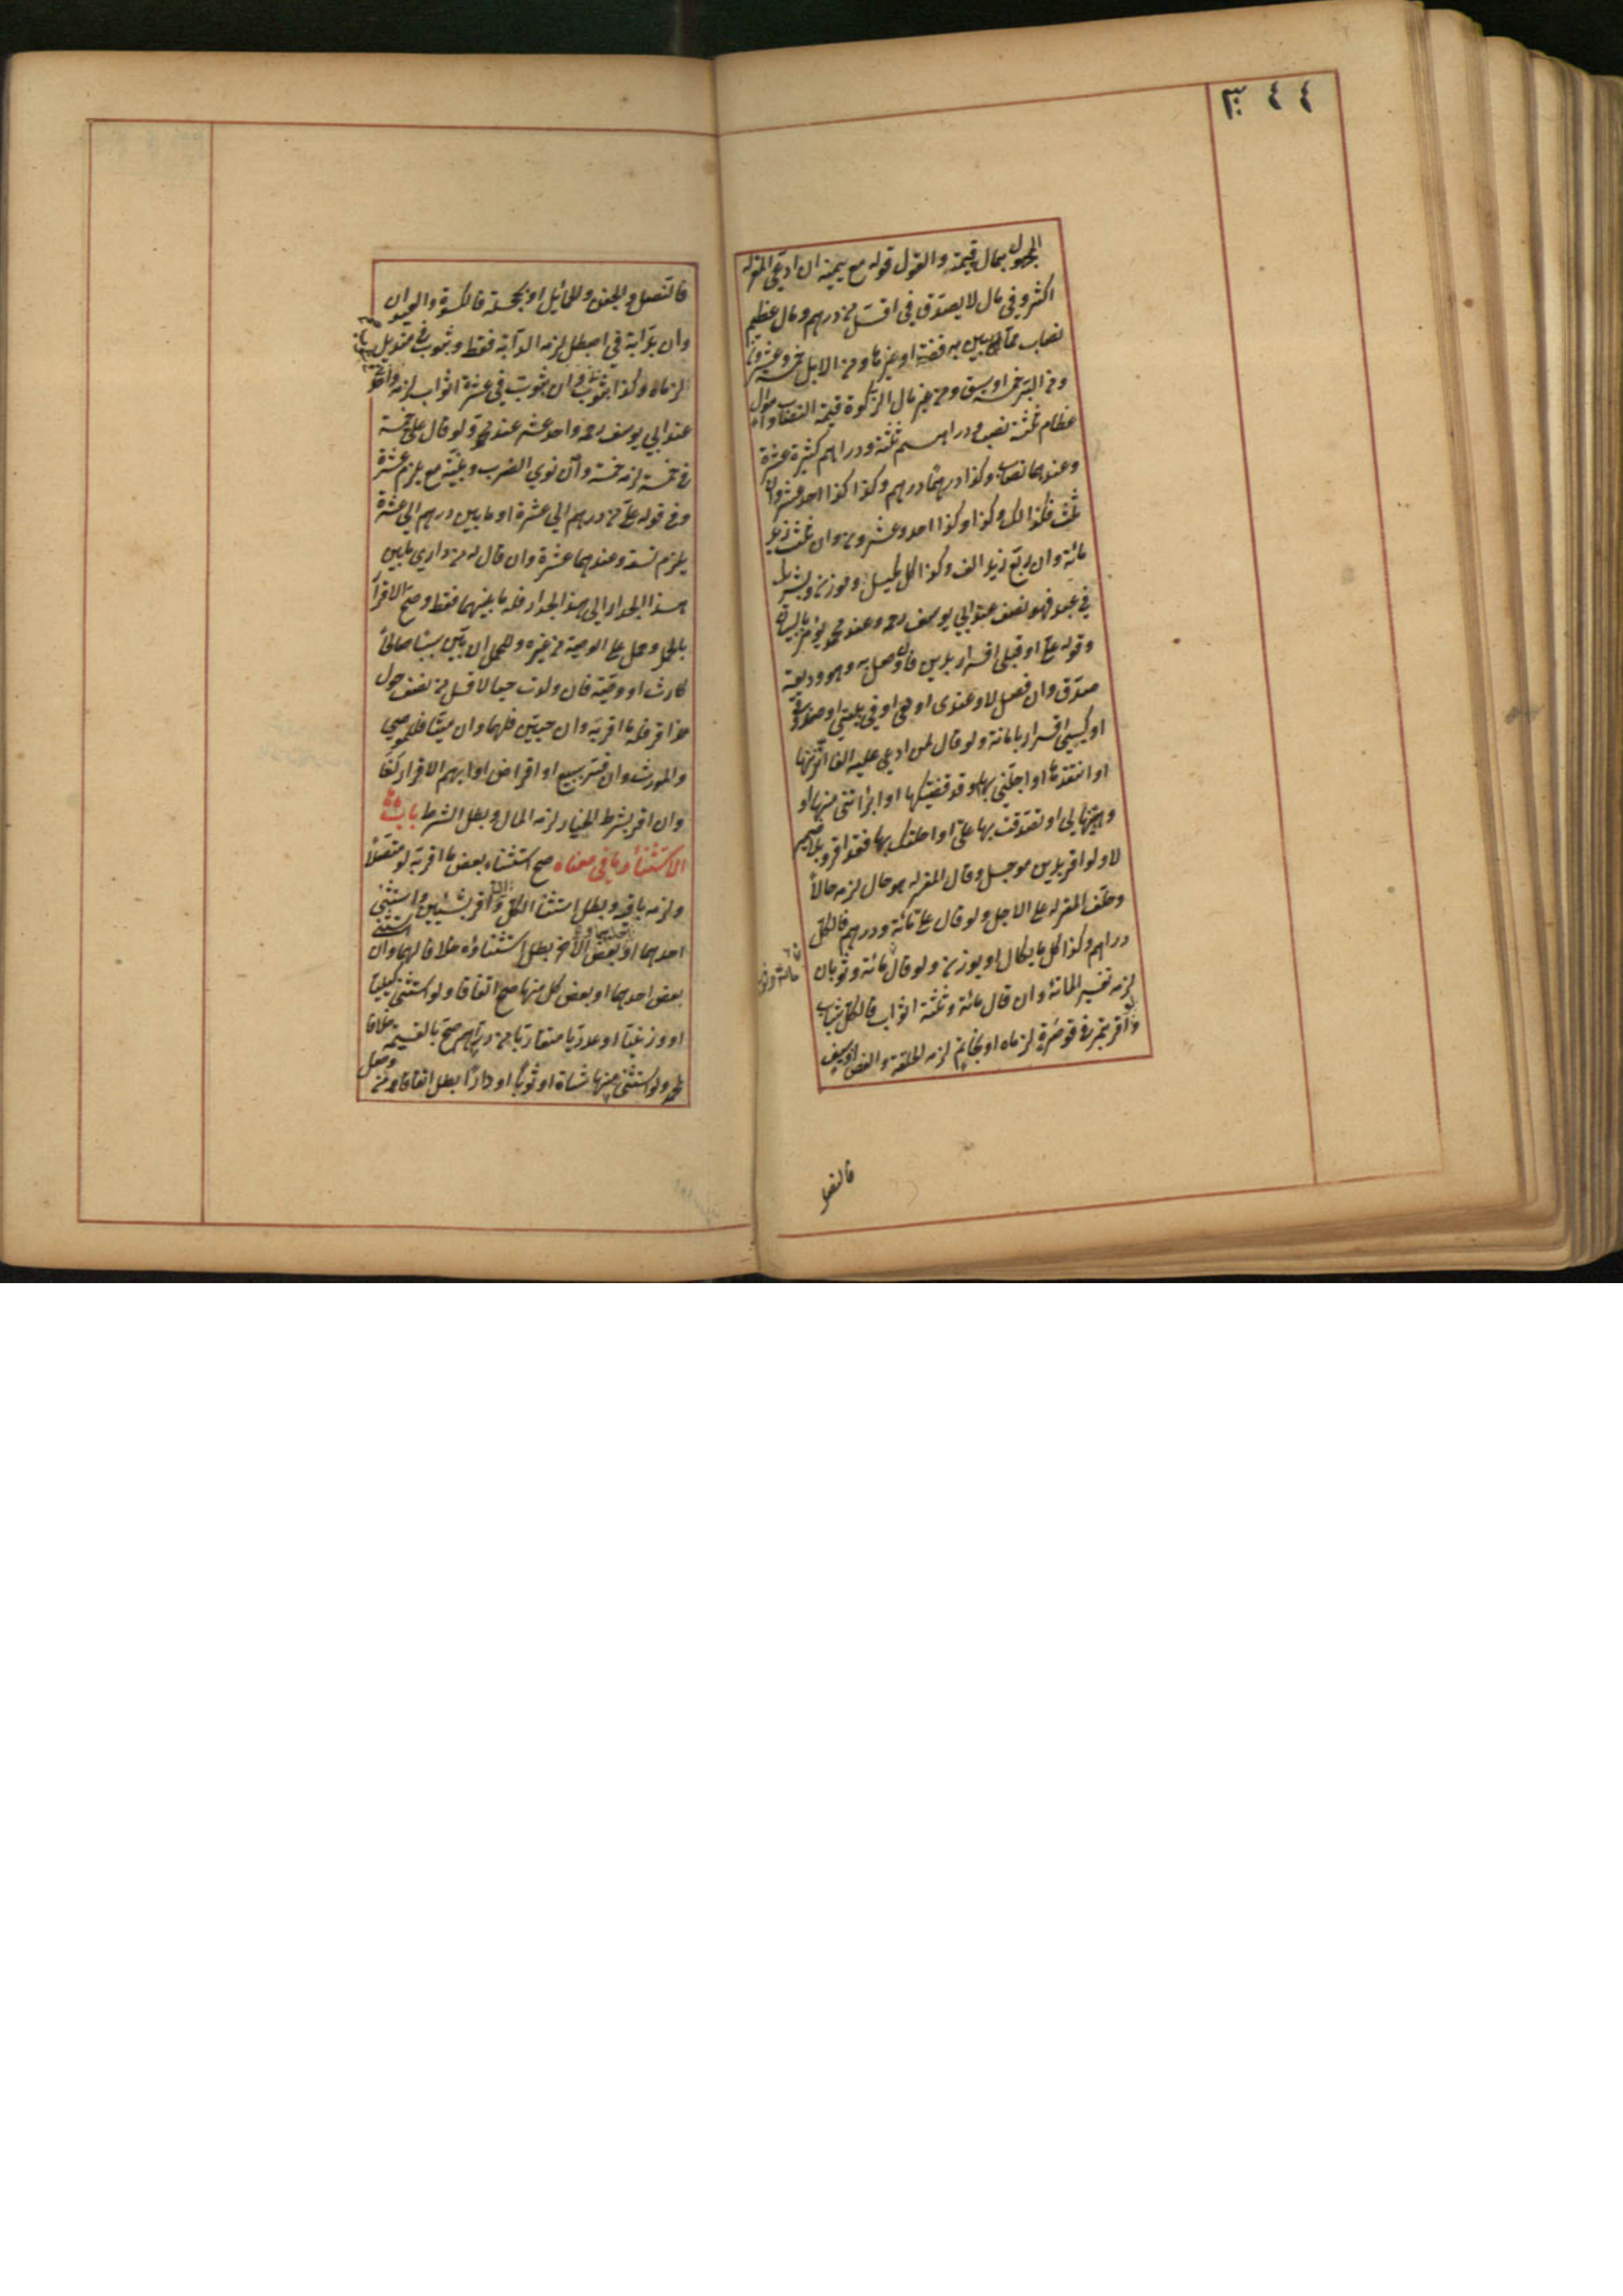 ٤٤٣
المجهول بمال له قيمة والقول قوله مع يمينه ان ادعى المقر له
اكثر وفي مال لا يصدق في اقل من درهم ومال عظيم
نصاب مما بين به فضة او غيرها ومن الابل خمسة وعشرون
ومن البر خمسة اوسق ومن غير مال الزكوة قيمة النصاب واموال
عظام ثلثة نصب ودراهم ثلثة ودراهم كثيرة عشرة
وعندهما نصاب وكذا درهما درهم وكذا كذا احد عشر وان
ثلث فكذلك وكذا وكذا احد وعشرون وان ثلث زيد
مائة وان ربع زيد الف وكذا كل مكيل وموزون وبشرك
في عبد فهو نصف عند ابي يوسف رحمه وعند محمد يؤمر بالبيان
وقوله علي او قبلي اقرار بدين فان وصل به وهو وديعة
صدق وان فصل لا وعندي او معي او في بيتي او صندوقي
او كيسي اقرار بامانة ولو قال لمن ادعى عليه الفا اتزنها
او انتقدها او اجلني بها او قد قضيتكها او ابرأتني منها او
وهبتها لي او تصدقت بها علي او احلتك بها فقد اقر وبلا ضمير
لا ولو اقر بدين مؤجل وقال المقر له هو حال لزمه حالا
وحلف المقر له على الاجل ولو قال علي مائة ودرهم فالكل
دراهم وكذا كل ما يكال او يوزن ولو قال مائة وثوبان
لزمه تفسير المائة وان قال مائة وثلثة اثواب فالكل ثياب
وان اقر بتمر في قوصرة لزماه او بخاتم لزمه الحلقة والفص او بسيف
فالنصل
فالنصل والجفن والحمائل او بحجلة فالكسوة والعيدان
وان بدابة في اصطبل لزمه الدابة فقط وبثوب في منديل
لزماه وكذا بثوب في ثوب وان بثوب في عشرة اثواب لزمه واحد
عند ابي يوسف رحمه واحد عشر عند محمد ولو قال علي خمسة
في خمسة لزمه خمسة وان نوى الضرب وبنية مع يلزم عشرة
وفي قوله علي من درهم الى عشرة او ما بين درهم الى عشرة
يلزم تسعة وعندهما عشرة وان قال له من داري ما بين
هذا الجدار الى هذا الجدار فله ما بينهما فقط وصح الاقرار
بالحمل وحمل على الوصية من غيره وللحمل ان بين سببا صالحا
كارث او وصية فان ولدت حيا لاقل من نصف حول
مذ اقر فله ما اقر به وان حيين فلهما وان ميتا فللموصي
والمورث وان فسر ببيع او اقراض او ابهم الاقرار لغا
وان اقر بشرط الخيار لزمه المال وبطل الشرط باب
الاستثناء وما في معناه صح استثناء بعض ما اقر به لو متصلا
ولزمه باقيه وبطل استثناء الكل وان اقر بشيئين واستثنى
احدهما او بعض الآخر بطل استثناؤه خلافا لهما وان استثنى
بعض احدهما او بعض كل منهما صح اتفاقا ولو استثنى كيليا
او وزنيا او عدديا متقاربا من دراهم صح بالقيمة خلافا
لمحمد ولو استثنى منها شاة او ثوبا او دارا بطل اتفاقا ومن وصل